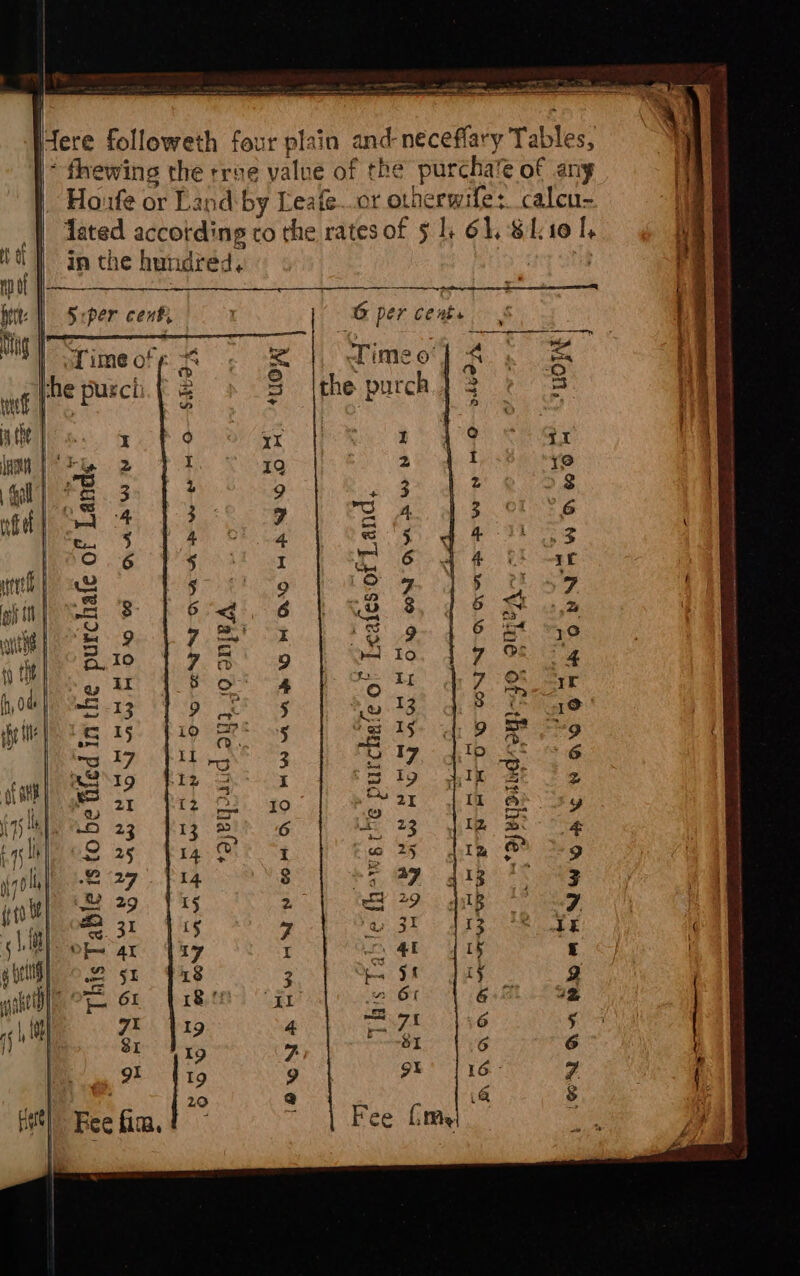 Here followeth four plain and necessary Tables,
shewing the true value of the purchase of any
House or Land by Lease or otherwise: calcu-
lated according to the rates of 5 l, 6 l, 8 l. 10 l,
in the hundred.
5 per cent, 6 per cent.
Time of the purch. Years Mon. Time of the purch. Years Mon.
This Table is to be used in the purchase of Lands
Value of the purchase.
This Table shows the purchase of Leases of Land,
Value of the purchase.
1 0 11 1 0 11
2 1 10 2 1 10
3 2 9 3 2 8
4 3 7 4 3 6
5 4 4 5 4 3
6 5 1 6 4 11
5 9 7 5 7
8 6 6 8 6 2
9 7 1 9 6 10
10 7 9 10 7 4
11 8 4 11 7 11
13 9 5 13 8 10
15 10 5 15 9 9
17 11 3 17 10 6
19 12 1 19 11 2
21 12 10 21 11 9
23 13 6 23 12 4
25 14 1 25 12 9
27 14 8 27 13 3
29 15 2 29 13 7
31 15 7 31 13 11
41 17 1 41 15 1
51 18 3 51 15 9
61 18 11 61 6 2
71 19 4 71 16 5
81 19 7 81 16 6
91 19 9 91 16 7
Fee sim. 20 0 Fee sime 16 8
Here